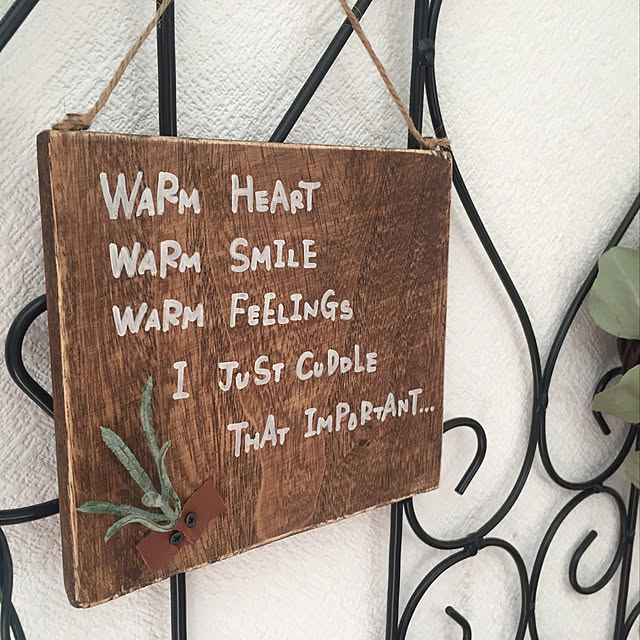 WARM HEART
WARM SMILE
WARM FEELINGS
I JUST CUDDLE
THAT IMPORTANT...